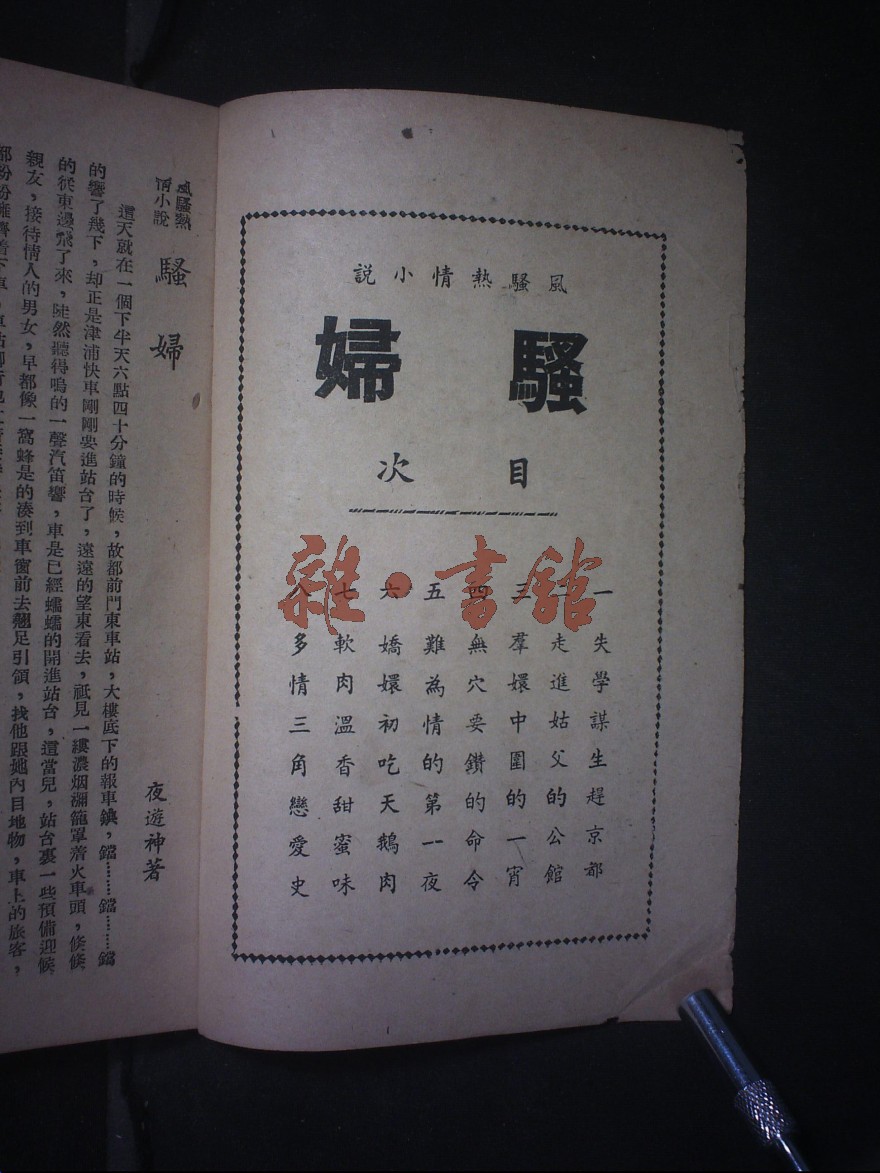 風騷熱情小說
騷婦
目次
一 失學謀生趕京都
二 走進姑父的公館
三 羣嬛中圍的一宵
四 無穴要鑽的命令
五 難為情的第一夜
六 嬌嬛初吃天鵝肉
七 軟肉溫香甜蜜味
八 多情三角戀愛史
雜·書舘
風騷熱情小說 騷婦
夜遊神著
這天就在一個下半天六點四十分鐘的時候，故都前門東車站，大樓底下的報車鐵，鐺……鐺……鐺
的響了幾下，却正是津浦快車剛剛要進站台了，遠遠的望東看去，祗見一縷濃烟瀰籠罩着火車頭，倏倏
的從東邊飛了來，陡然聽得嗚的一聲汽笛響，車是已經蠕蠕的開進站台，這當兒，站台裏一些預備迎候
親友，接待情人的男女，早都像一窩蜂是的湊到車窗前去翹足引領，找他跟她內目地物，車上的旅客，